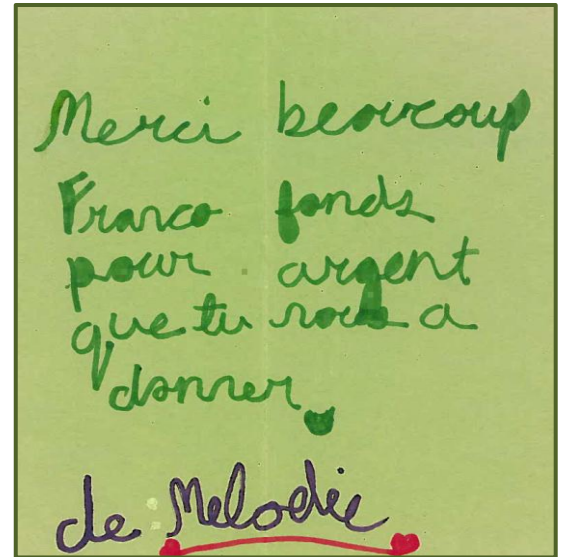 Merci beaucoup
Franco fonds
pour argent
que tu nous a
donner
de Melodie